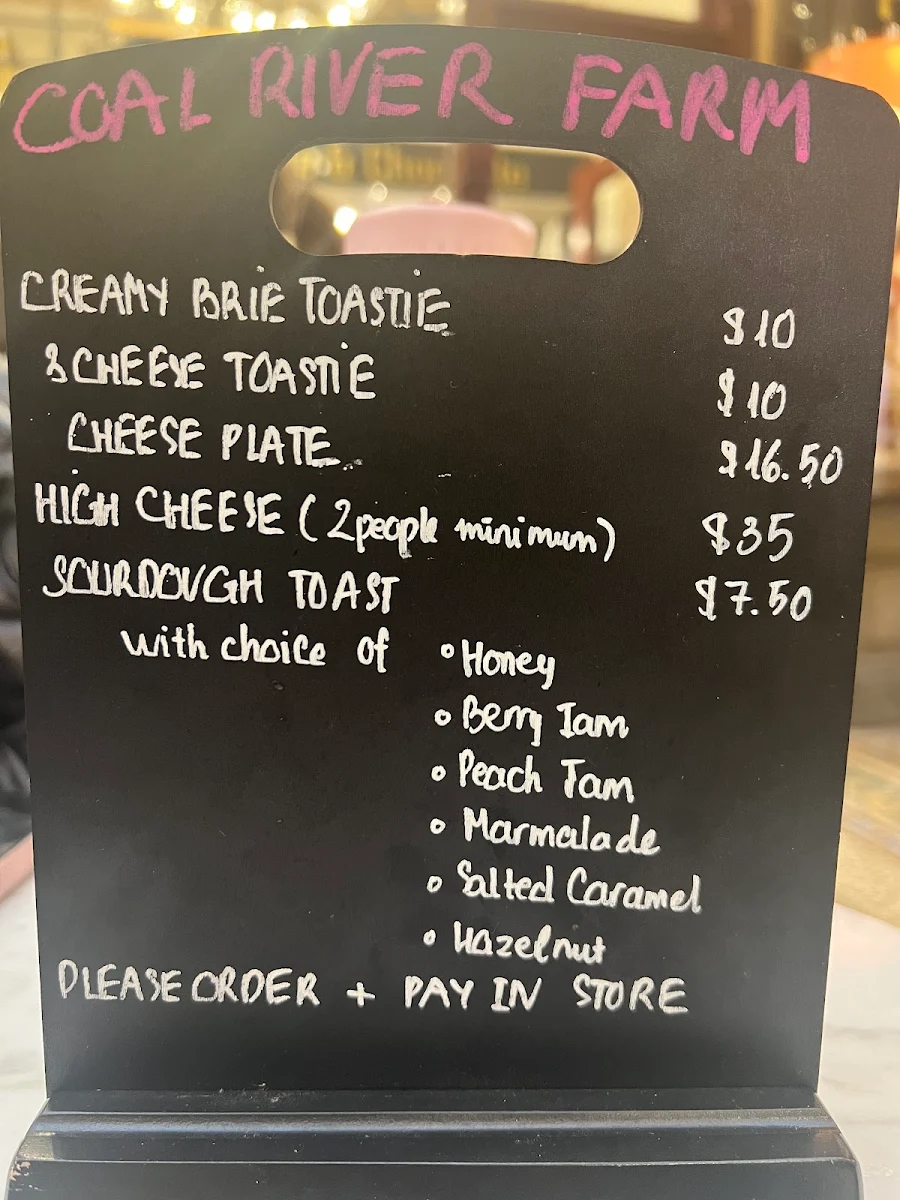 COAL RIVER FARM
CREAMY BRIE TOASTIE $10
3 CHEESE TOASTIE $10
CHEESE PLATE $16.50
HIGH CHEESE (2 people minimum) $35
SOURDOUGH TOAST $7.50
with choice of • Honey
• Berry Jam
• Peach Jam
• Marmalade
• Salted Caramel
• Hazelnut
PLEASE ORDER + PAY IN STORE